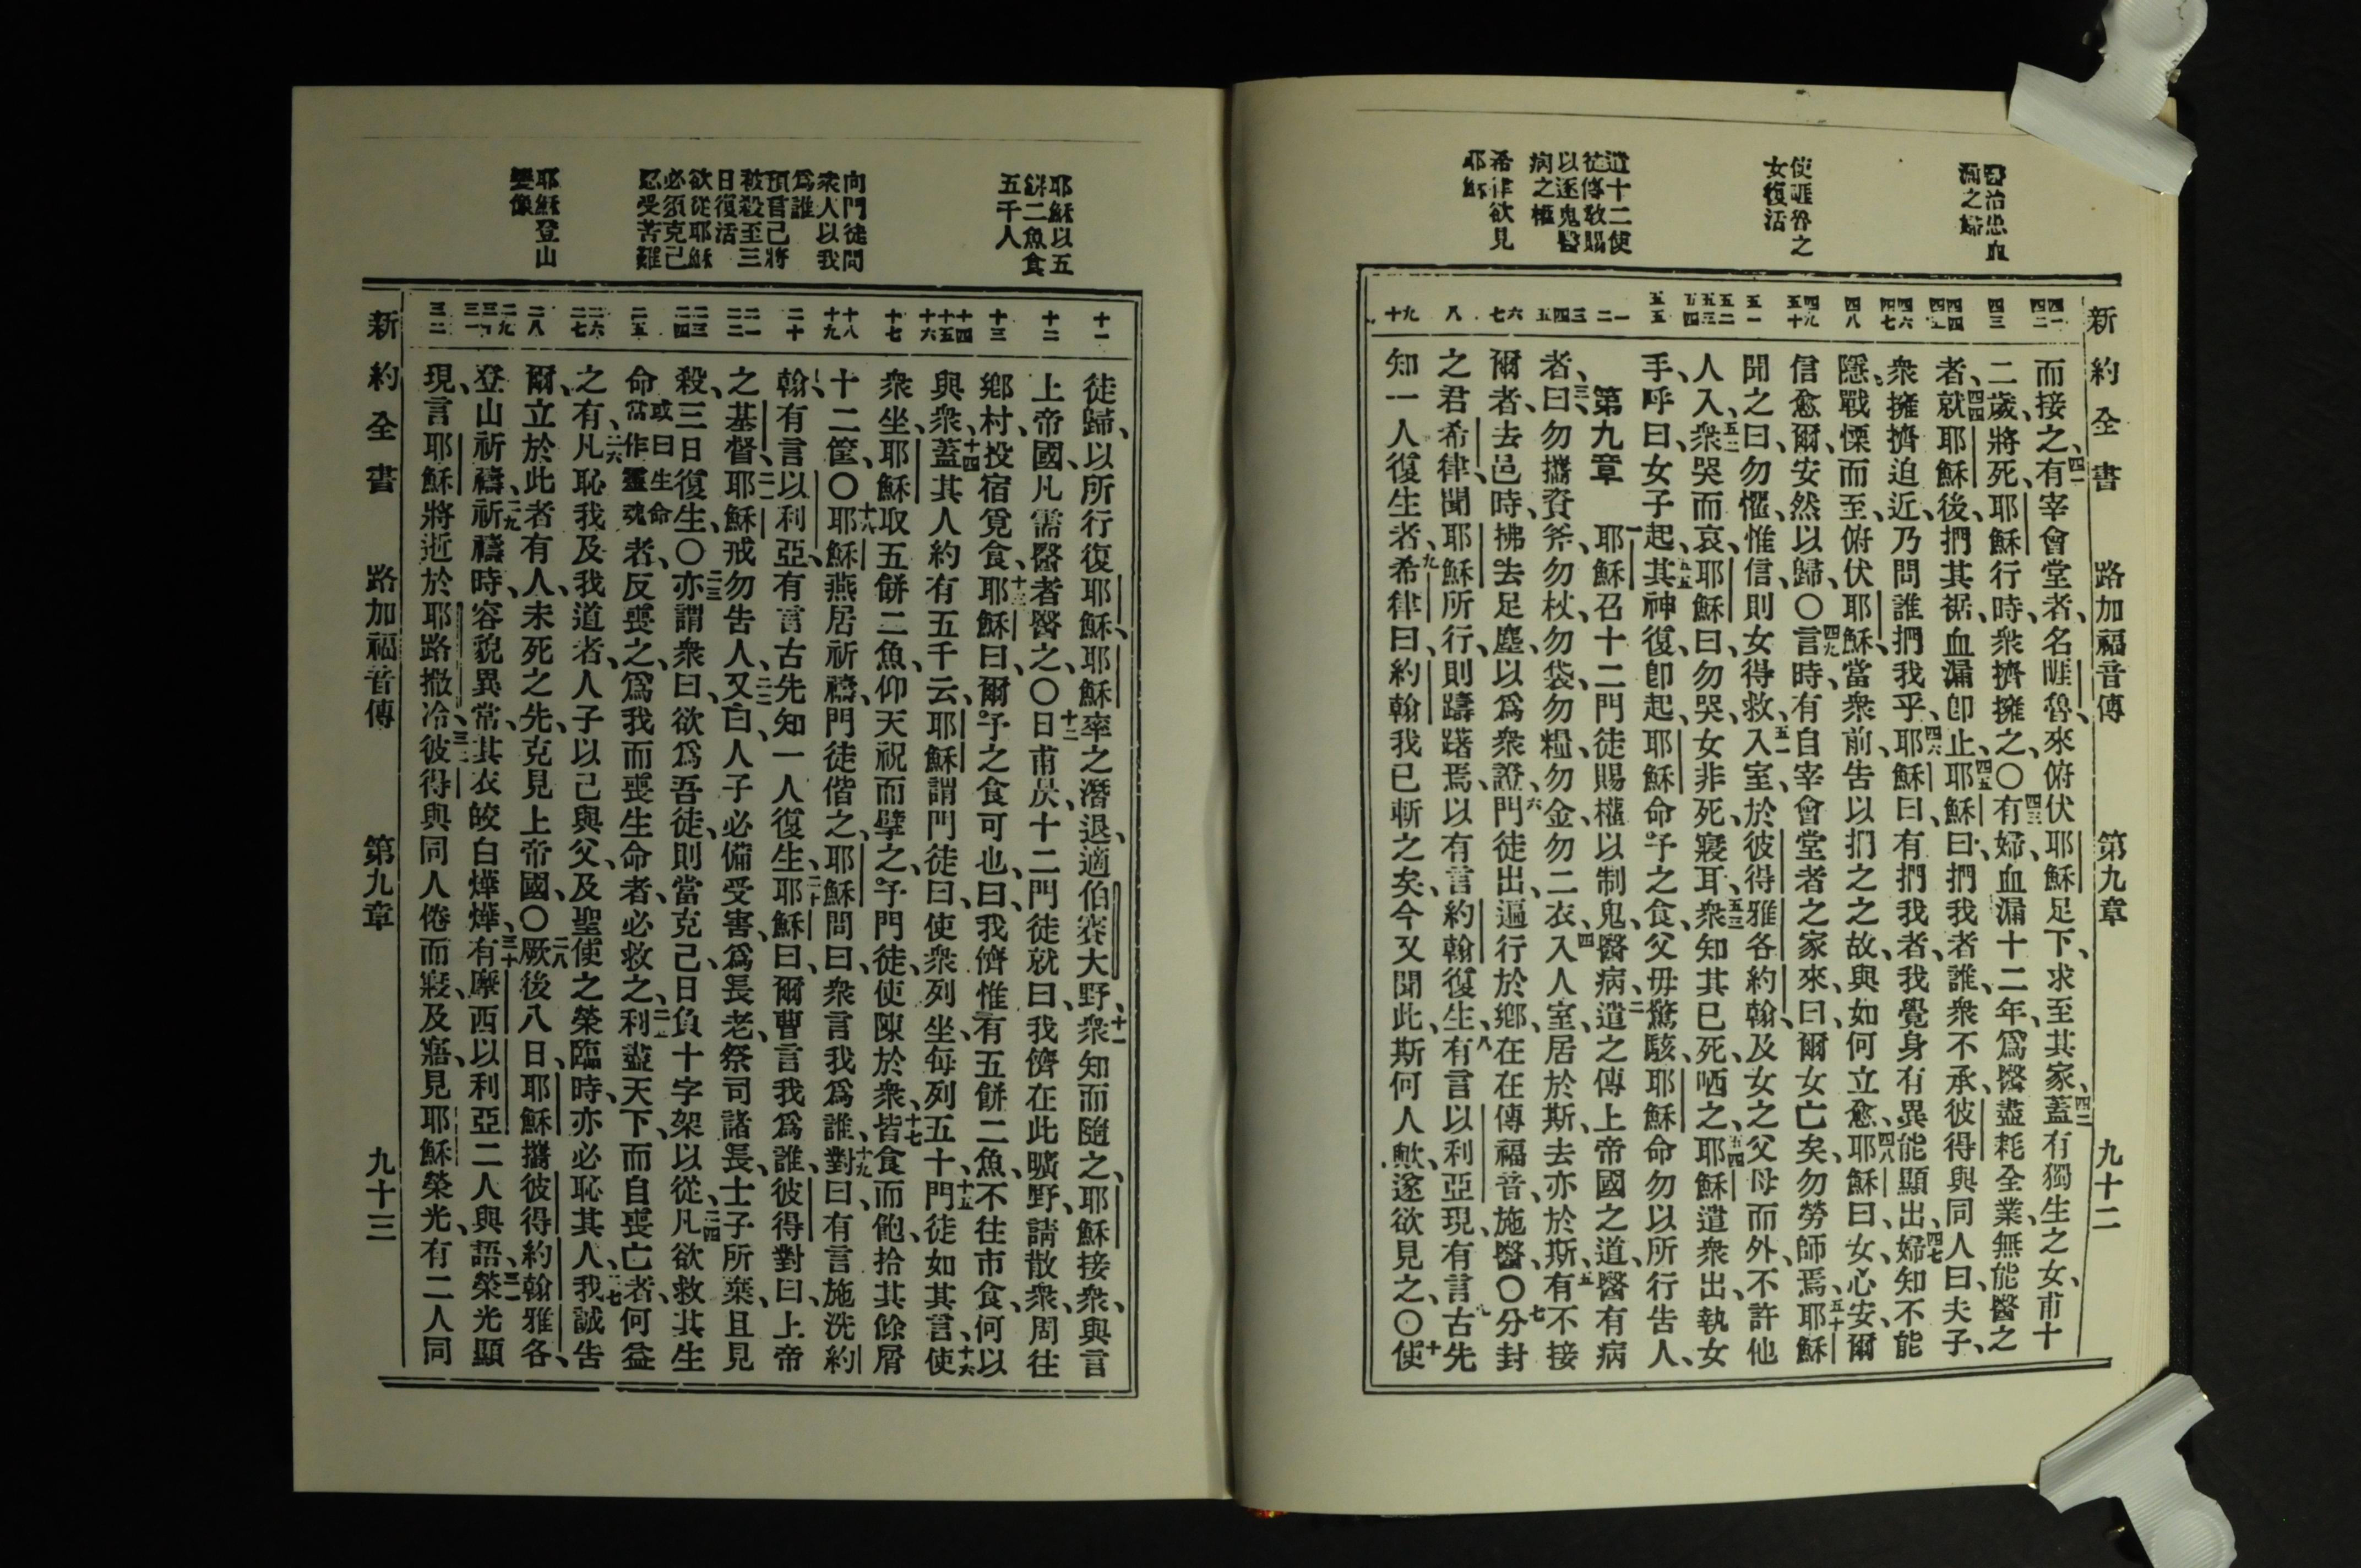 新約全書　路加福音傳　第九章　九十二
醫治患血漏之婦
使睚魯之女復活
遣十二使徒傳敎賜以逐鬼醫病之權
希律欲見耶穌
四一 四二
四三
四四 四五
四六 四七
四八
四九 五十
五一
五二 五三 五四
五五
一 二
三 四 五
六 七
八
九 十
而接之、四一有宰會堂者、名睚魯、來俯伏耶穌足下、求至其家、四二蓋有獨生之女、甫十
二歲、將死、耶穌行時、衆擠擁之、〇四三有婦、血漏十二年、爲醫盡耗全業、無能醫之
者、四四就耶穌後、捫其裾、血漏卽止、四五耶穌曰、捫我者誰、衆不承、彼得與同人曰、夫子、
衆擁擠迫近、乃問誰捫我乎、四六耶穌曰、有捫我者、我覺身有異能顯出、四七婦知不能
隱、戰慄而至、俯伏耶穌、當衆前、告以捫之之故、與如何立愈、四八耶穌曰、女、心安、爾
信愈爾、安然以歸、〇四九言時、有自宰會堂者之家來、曰、爾女亡矣、勿勞師焉、五十耶穌
聞之曰、勿懼、惟信、則女得救、五一入室、於彼得雅各約翰、及女之父母而外、不許他
人入、五二衆哭而哀、耶穌曰、勿哭、女非死、寢耳、五三衆知其已死、哂之、五四耶穌遣衆出、執女
手、呼曰、女子起、五五其神復、卽起、耶穌命予之食、父母驚駭、耶穌命勿以所行告人、
第九章　一耶穌召十二門徒、賜權以制鬼醫病、二遣之傳上帝國之道、醫有病
者、三曰、勿攜資斧、勿杖、勿袋、勿糧、勿金、勿二衣、四入人室、居於斯、去亦於斯、五有不接
爾者、去邑時、拂去足塵、以爲衆證、六門徒出、遍行於鄕、在在傳福音、施醫、〇七分封
之君希律、聞耶穌所行、則躊躇焉、以有言約翰復生、八有言以利亞現、有言古先
知一人復生者、九希律曰、約翰我已斬之矣、今又聞此、斯何人歟、遂欲見之、〇十使
耶穌以五餅二魚食五千人
向門徒問衆人以我爲誰
預言己將被殺至三日復活
欲從耶穌必須克己忍受苦難
耶穌登山變像
十一
十二
十三
十四 十五 十六
十七
十八 十九
二十
二一 二二
二三 二四
二五
二六 二七
二八
二九 三十 三一
三二
徒歸、以所行復耶穌、耶穌率之潛退、適伯賽大野、十一衆知而隨之、耶穌接衆、與言
上帝國、凡需醫者醫之、〇十二日甫昃、十二門徒就曰、我儕在此曠野、請散衆、周往
鄕村、投宿覓食、十三耶穌曰、爾予之食可也、曰、我儕惟有五餅二魚、不往市食、何以
與衆、十四蓋其人約有五千云、耶穌謂門徒曰、使衆列坐、每列五十、十五門徒如其言、使
衆坐、十六耶穌取五餅二魚、仰天祝而擘之、予門徒、使陳於衆、十七皆食而飽、拾其餘屑
十二筐、〇十八耶穌燕居祈禱、門徒偕之、耶穌問曰、衆言我爲誰、十九對曰、有言施洗約
翰、有言以利亞、有言古先知一人復生、二十耶穌曰、爾曹言我爲誰、彼得對曰、上帝
之基督、二一耶穌戒勿告人、二二又曰、人子必備受害、爲長老、祭司諸長、士子所棄、且見
殺、三日復生、〇二三亦謂衆曰、欲爲吾徒、則當克己、日負十字架以從、二四凡欲救其生
命或曰生命當作靈魂者、反喪之、爲我而喪生命者、必救之、二五利盡天下、而自喪亡者、何益
之有、二六凡恥我及我道者、人子以己與父、及聖使之榮臨時、亦必恥其人、二七我誠告
爾、立於此者、有人、未死之先、克見上帝國、〇二八厥後八日、耶穌攜彼得約翰雅各、
登山祈禱、二九祈禱時、容貌異常、其衣皎白燁燁、三十有摩西以利亞二人與語、三一榮光顯
現、言耶穌將逝於耶路撒冷、三二彼得與同人倦而寢、及寤、見耶穌榮光、有二人同
新約全書　路加福音傳　第九章　九十三